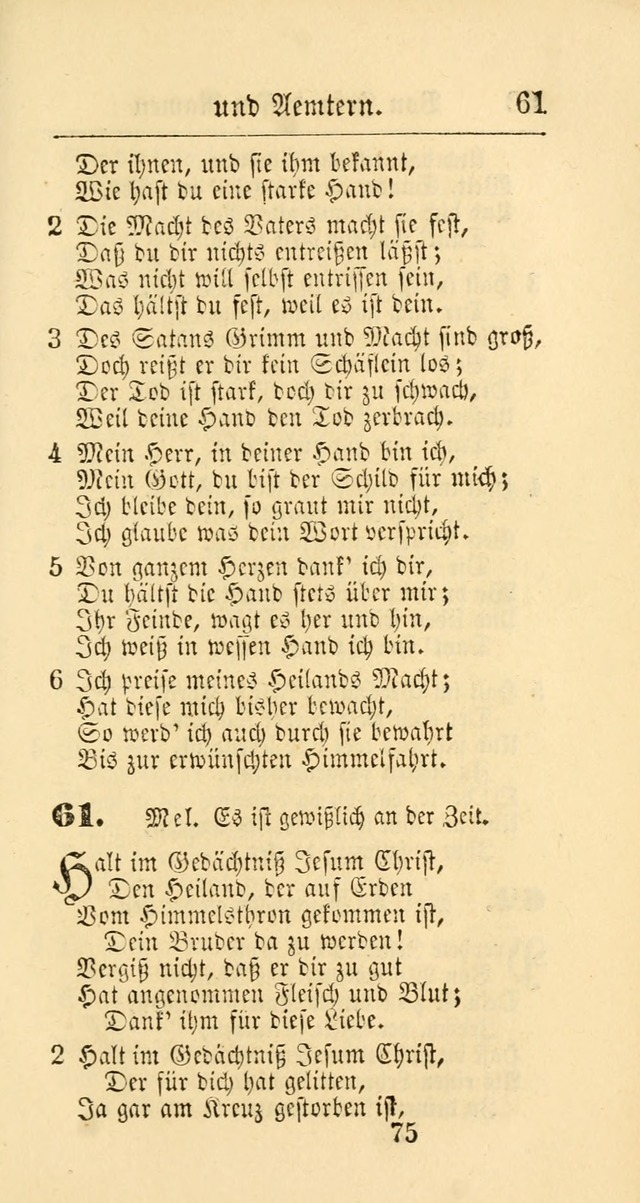 und Aemtern. 61
Der ihnen, und sie ihm bekannt,
Wie hast du eine starke Hand!
2 Die Macht des Vaters macht sie fest,
Daß du dir nichts entreißen läßst;
Was nicht will selbst entrissen sein,
Das hältst du fest, weil es ist dein.
3 Des Satans Grimm und Macht sind groß,
Doch reißt er dir kein Schäflein los;
Der Tod ist stark, doch dir zu schwach,
Weil deine Hand den Tod zerbrach.
4 Mein Herr, in deiner Hand bin ich,
Mein Gott, du bist der Schild für mich;
Ich bleibe dein, so graut mir nicht,
Ich glaube was dein Wort verspricht.
5 Von ganzem Herzen dank' ich dir,
Du hältst die Hand stets über mir;
Ihr Feinde, wagt es her und hin,
Ich weiß in wessen Hand ich bin.
6 Ich preise meines Heilands Macht;
Hat diese mich bisher bewacht,
So werd' ich auch durch sie bewahrt
Bis zur erwünschten Himmelfahrt.
61. Mel. Es ist gewißlich an der Zeit.
Halt im Gedächtniß Jesum Christ,
Den Heiland, der auf Erden
Vom Himmelsthron gekommen ist,
Dein Bruder da zu werden!
Vergiß nicht, daß er dir zu gut
Hat angenommen Fleisch und Blut;
Dank' ihm für diese Liebe.
2 Halt im Gedächtniß Jesum Christ,
Der für dich hat gelitten,
Ja gar am Kreuz gestorben ist,
75